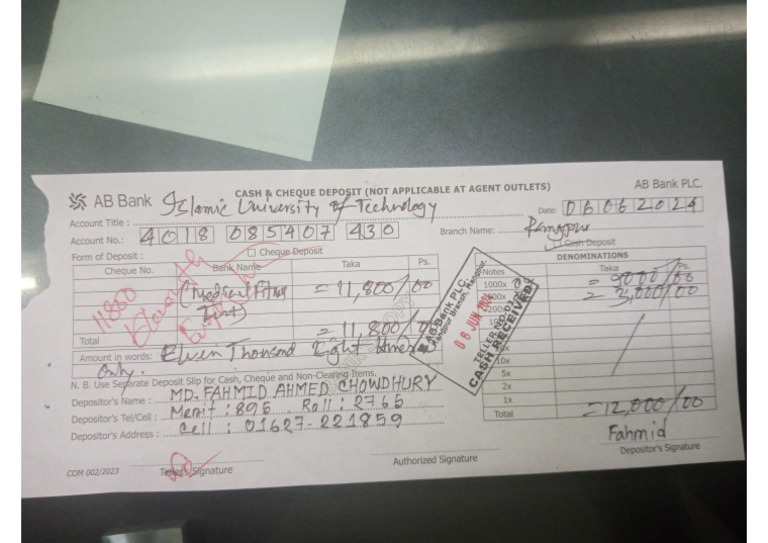 CASH & CHEQUE DEPOSIT (NOT APPLICABLE AT AGENT OUTLETS)
AB Bank PLC.
AB Bank
Account Title : Islamic University of Technology
Date: 06062024
Account No.: 4018 085407 430
Branch Name: Rangpur
Form of Deposit :
Cheque Deposit
Cash Deposit
Cheque No. Bank Name Taka Ps.
DENOMINATIONS
Notes Taka Ps.
(Medical = 11,800/00
1000x = 9000/00
500x = 3,000/00
11800
Total = 11,800/00
AB Bank PLC.
Rangpur Branch, Rangpur.
06 JUN 2024
CASH RECEIVED
Amount in words: Elven Thousand Eight
Only.
10x
5x
2x
1x
Total = 12,000/00
N. B. Use Separate Deposit Slip for Cash, Cheque and Non-Clearing Items.
Depositor's Name : MD. FAHMID AHMED CHOWDHURY
Depositor's Tel/Cell : Merit : 895 Roll : 2765
Depositor's Address : Cell : 01627-221859
Fahmid
Depositor's Signature
COM 002/2023
Teller's Signature
Authorized Signature